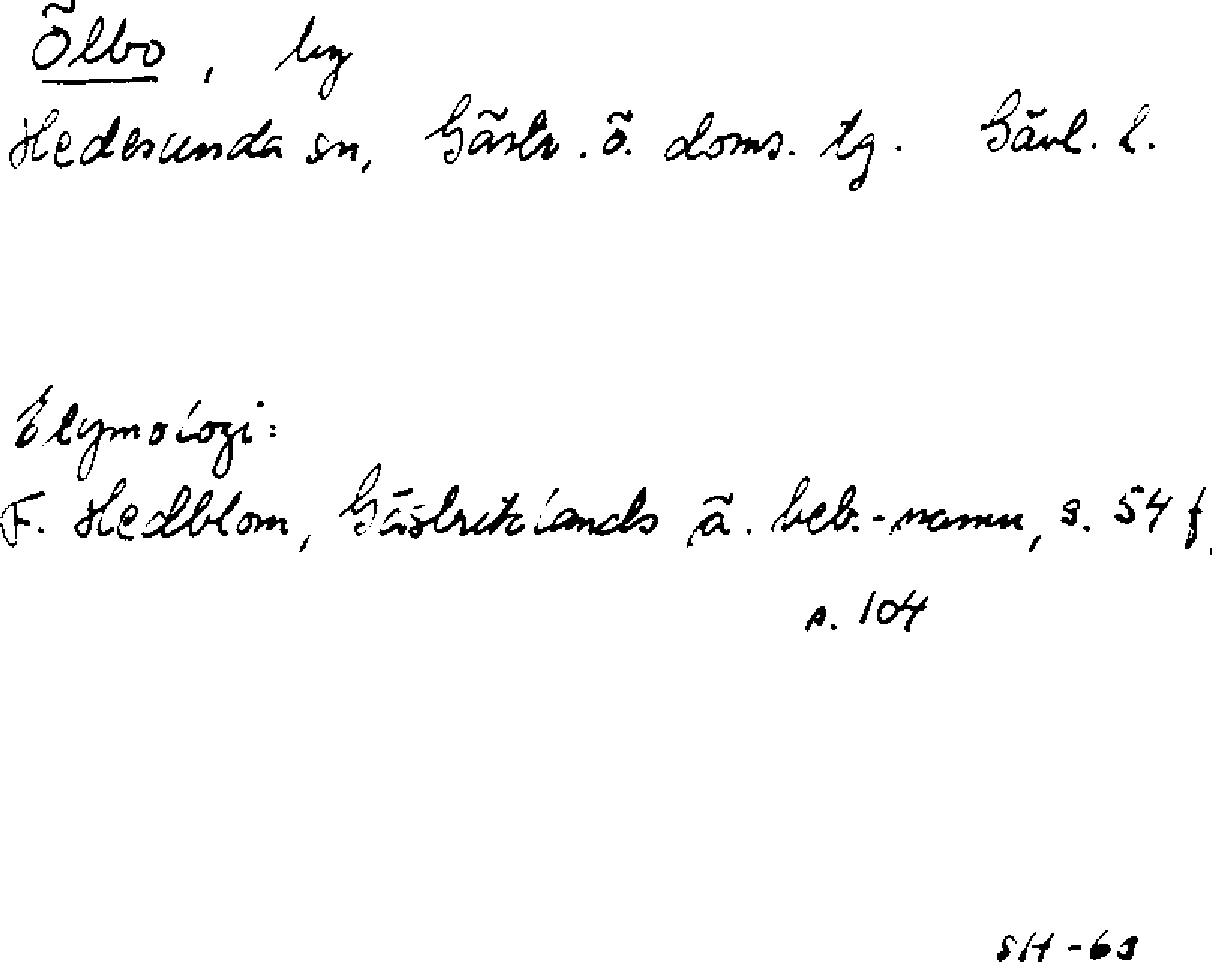 Ölbo, by
Hedesunda sn, Gästr. ö. doms. tg. Gävl. l.
Etymologi:
F. Hedblom, Gästriklands ä. beb.-namn, s. 54 f.
s. 104
SH-63